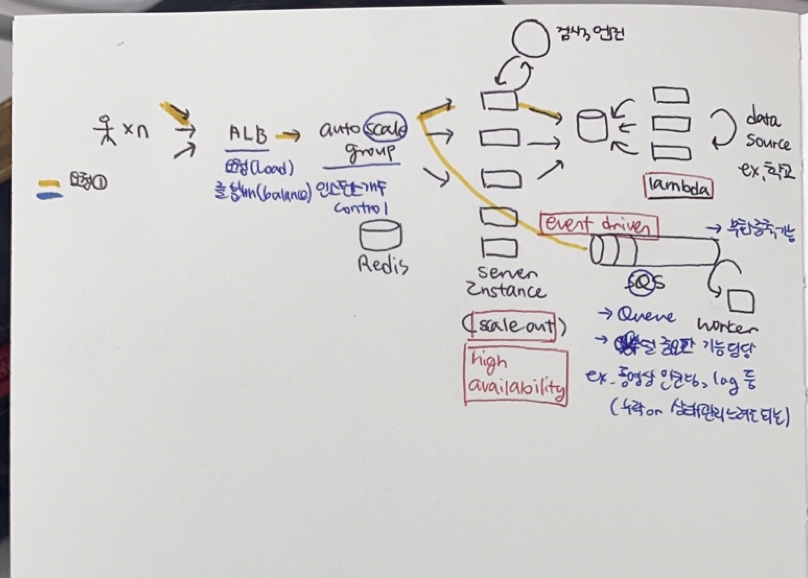 검색엔진
×n
ALB
auto scale
group
요청(Load)
를 분배(balance)
인스턴스 개수
control
요청①
Redis
server
Instance
(scale out)
high
availability
lambda
data
source
ex. 학교
event driven
→ 무한증축가능
SQS
→ Queue
worker
→ 덜 중요한 기능담당
ex. 동영상 인코딩, log 등
(누락 or 상태관리 느려도 되는)